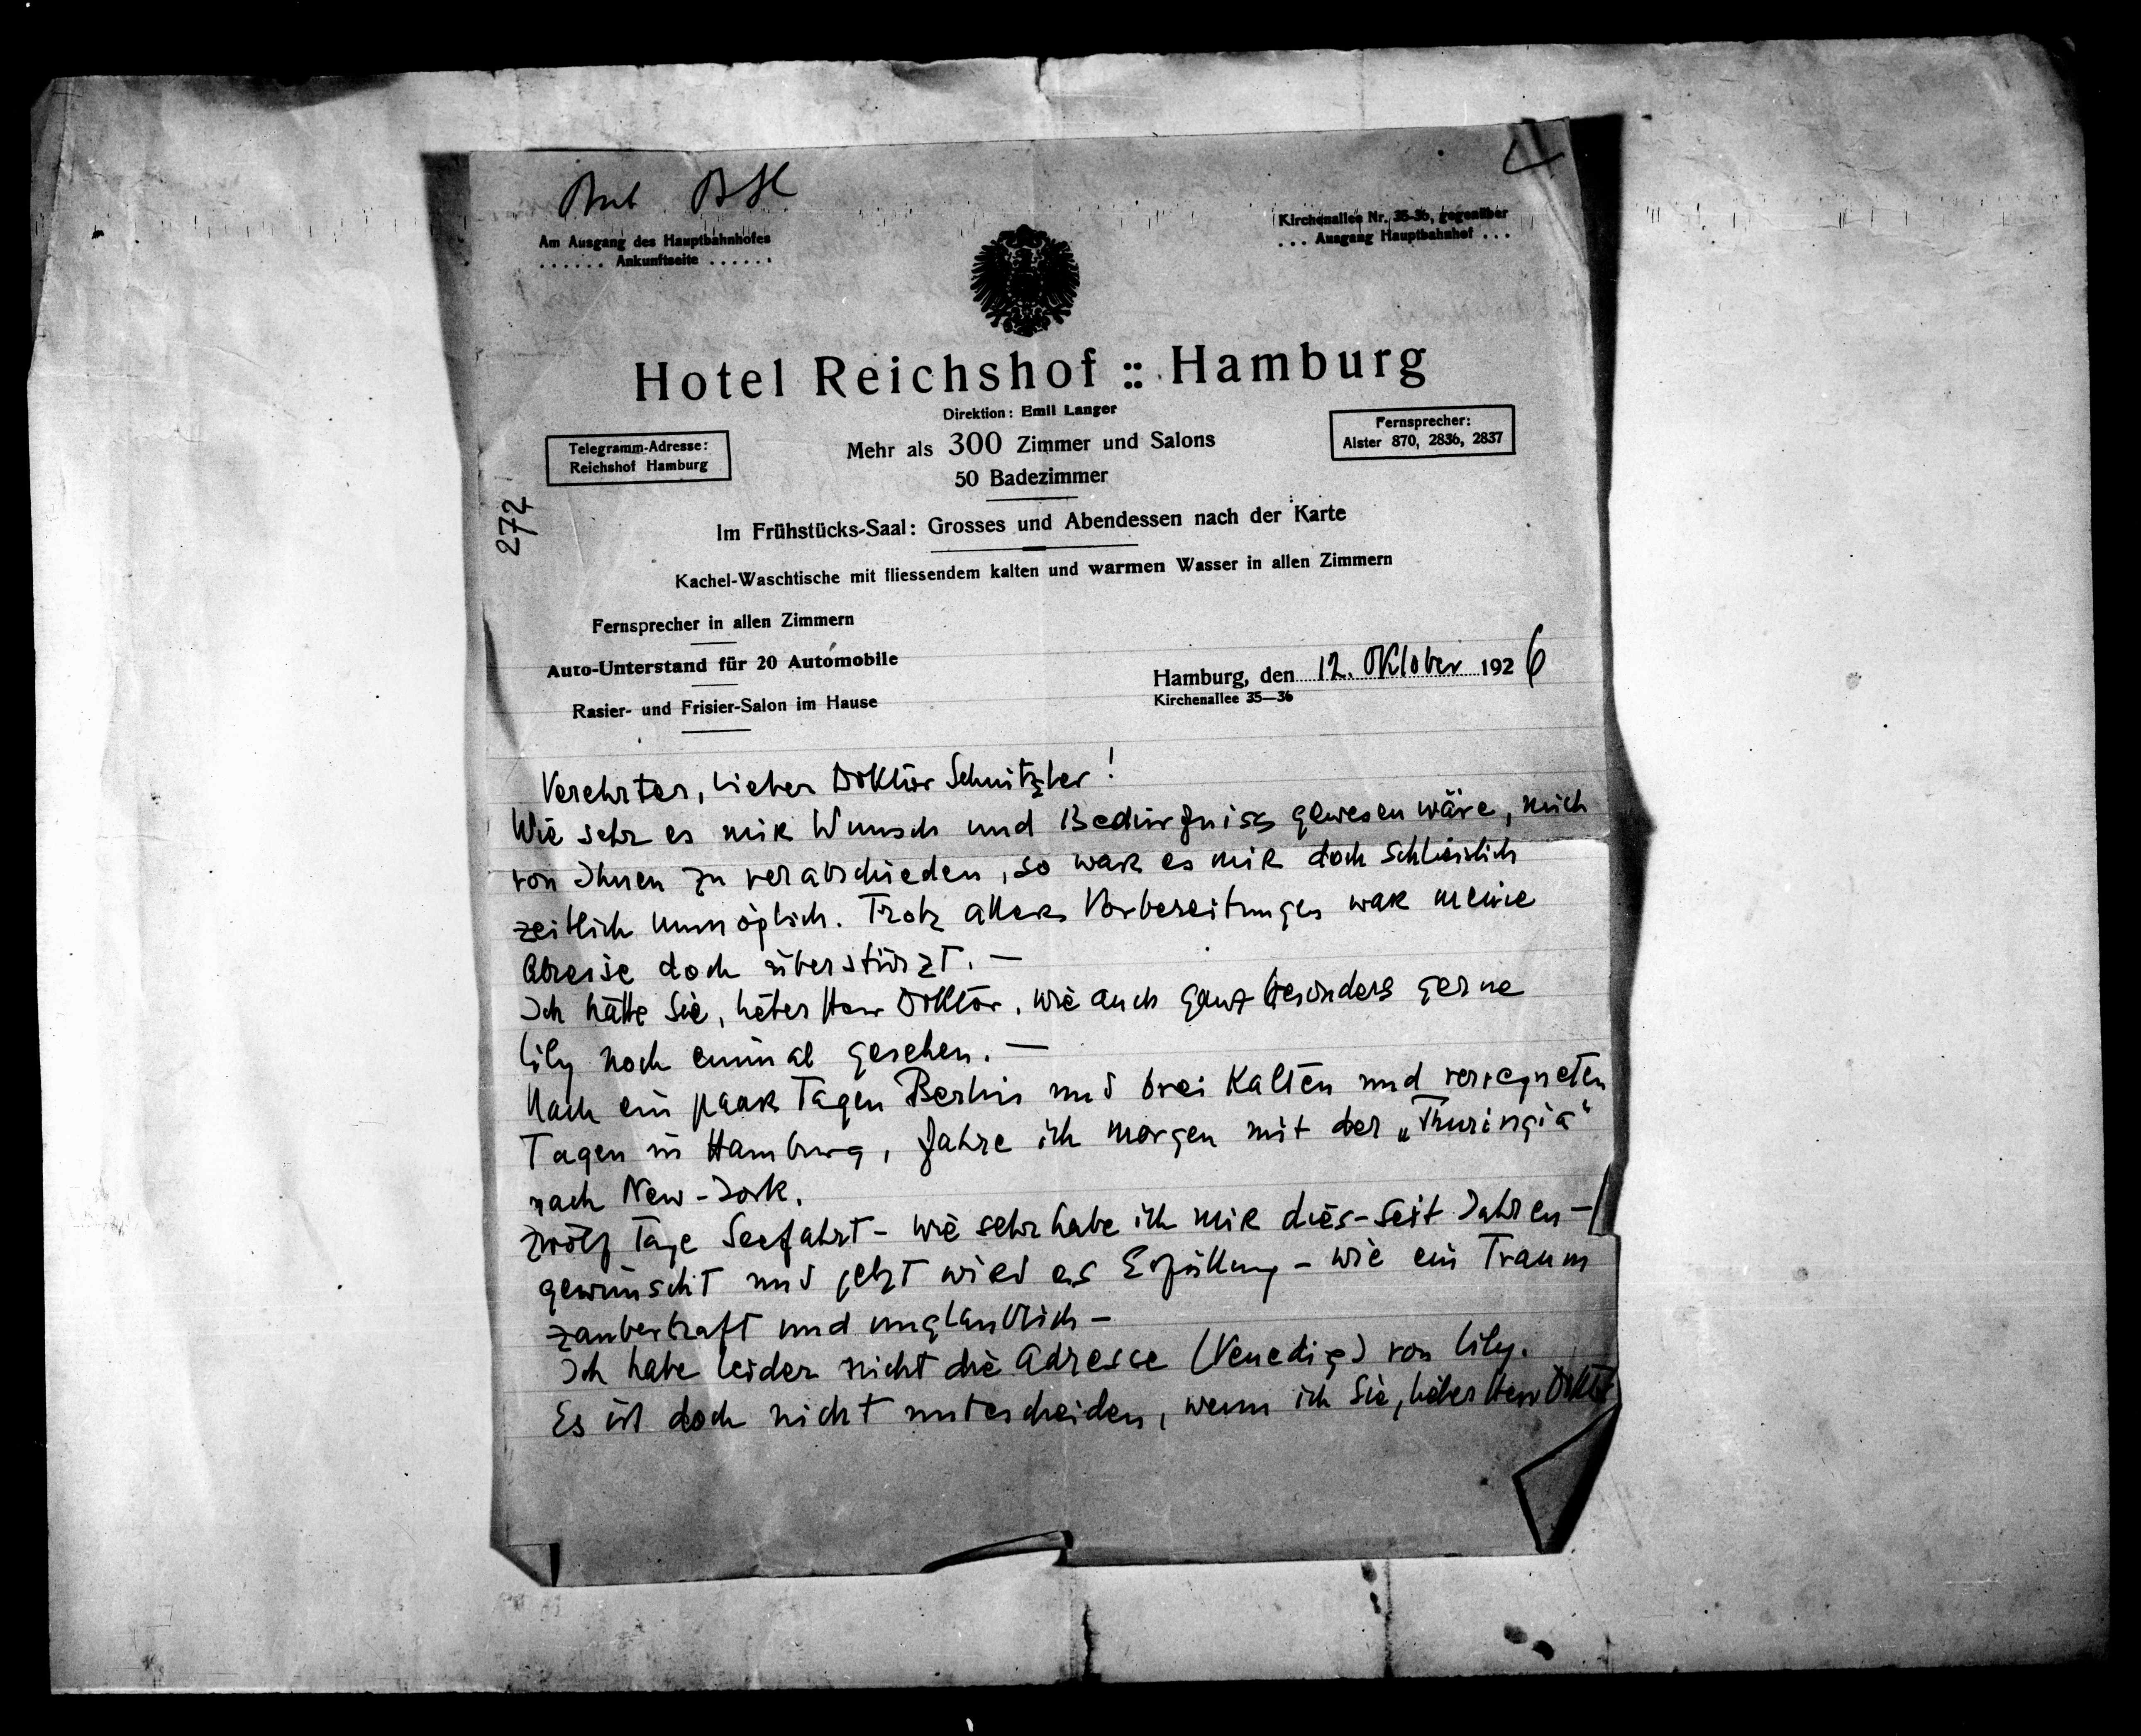 Am Ausgang des Hauptbahnhofes
...... Ankunftseite ......
Kirchenallee Nr. 35-36, gegenüber
... Ausgang Hauptbahnhof ...
Hotel Reichshof :: Hamburg
Direktion: Emil Langer
Telegramm-Adresse:
Reichshof Hamburg
Mehr als 300 Zimmer und Salons
50 Badezimmer
Fernsprecher:
Alster 870, 2836, 2837
272
Im Frühstücks-Saal: Grosses und Abendessen nach der Karte
Kachel-Waschtische mit fliessendem kalten und warmen Wasser in allen Zimmern
Fernsprecher in allen Zimmern
Auto-Unterstand für 20 Automobile
Rasier- und Frisier-Salon im Hause
Hamburg, den 12. Oktober 1926
Kirchenallee 35—36
Verehrter, lieber Doktor Schnitzler!
Wie sehr es mir Wunsch und Bedürfniss gewesen wäre, mich
von Ihnen zu verabschieden, so war es mir doch schliesslich
zeitlich unmöglich. Trotz aller Vorbereitungen war meine
Abreise doch überstürzt. —
Ich hätte Sie, lieber Herr Doktor, wie auch ganz besonders gerne
Lily noch einmal gesehen. —
Nach ein paar Tagen Berlin und drei kalten und verregneten
Tagen in Hamburg, fahre ich morgen mit der „Thuringia"
nach New-York.
Zwölf Tage Seefahrt - wie sehr habe ich mir dies - seit Jahren -
gewünscht und jetzt wird es Erfüllung - wie ein Traum
zauberhaft und unglaublich -
Ich habe leider nicht die Adresse (Venedig) von Lily.
Es ist doch nicht unbescheiden, wenn ich Sie, lieber Herr Doktor